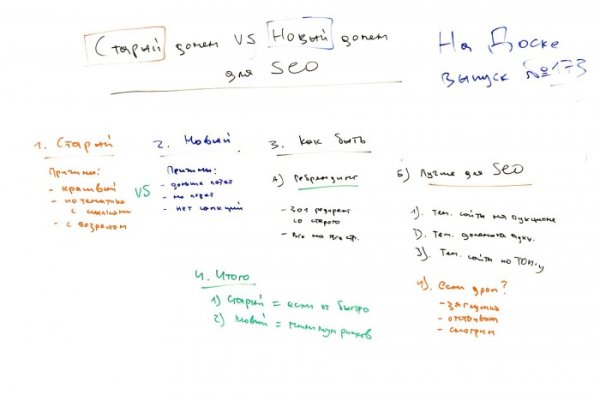 Старый домен VS Новый домен
для SEO
На Доске
выпуск №173
1. Старый
Причины:
- красивый
- по тематике
с ссылками
- с возрастом
VS
2. Новый
Причины:
- дольше
- не
- нет санкций
3. Как быть
А) Ребрендинг
- 301 редирект
со старого
- Все на все стр.
Б) Лучше для SEO
1). Тем. сайты на аукционе
2). Тем. домены
3). Тем. сайты по ТОП-у
4). Если дроп?
- заглушка
- отстойник
- смотрим
4. Итого
1) Старый = если оч быстро
2) Новый = минимум рисков